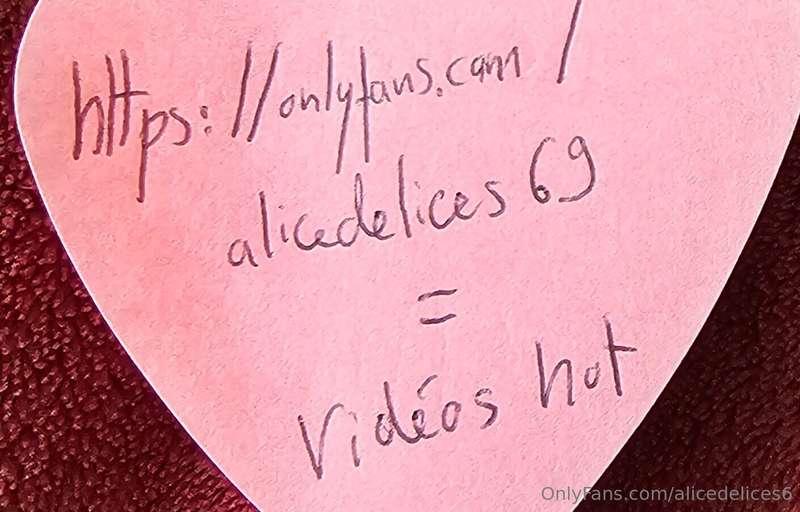 https://onlyfans.com/
alicedelices69
=
Vidéos hot
OnlyFans.com/alicedelices6